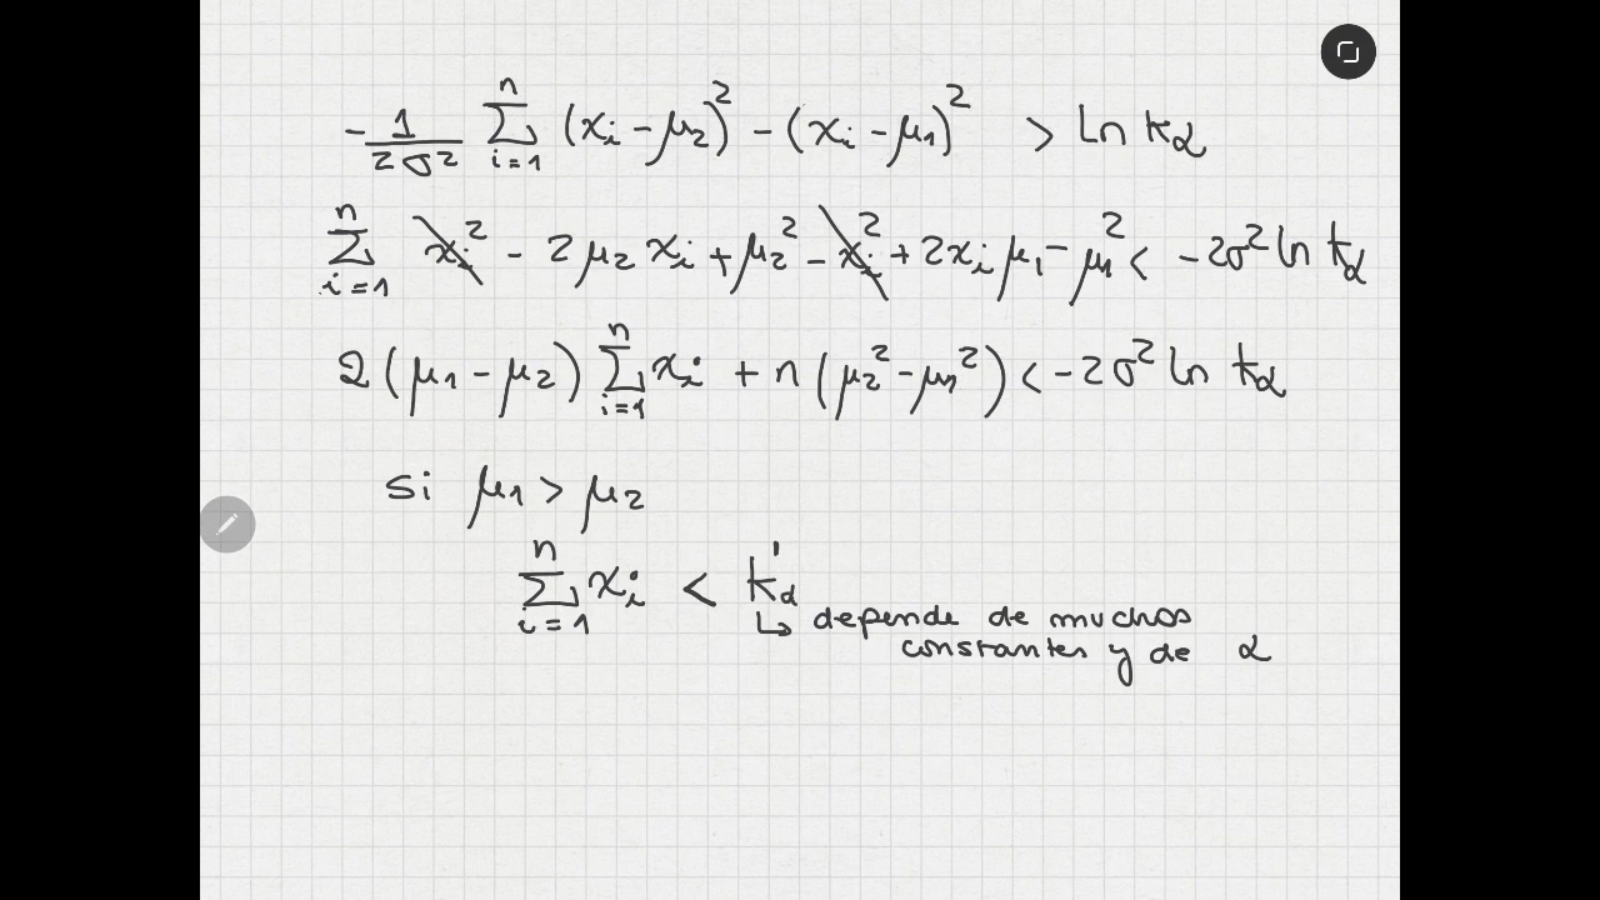 -1/(2σ²) Σ_{i=1}^{n} (x_i - μ_2)² - (x_i - μ_1)² > ln k_α
Σ_{i=1}^{n} x_i² - 2μ_2 x_i + μ_2² - x_i² + 2x_i μ_1 - μ_1² < -2σ² ln k_α
2(μ_1 - μ_2) Σ_{i=1}^{n} x_i + n(μ_2² - μ_1²) < -2σ² ln k_α
si μ_1 > μ_2
Σ_{i=1}^{n} x_i < k'_α
↳ depende de muchas
constantes y de α